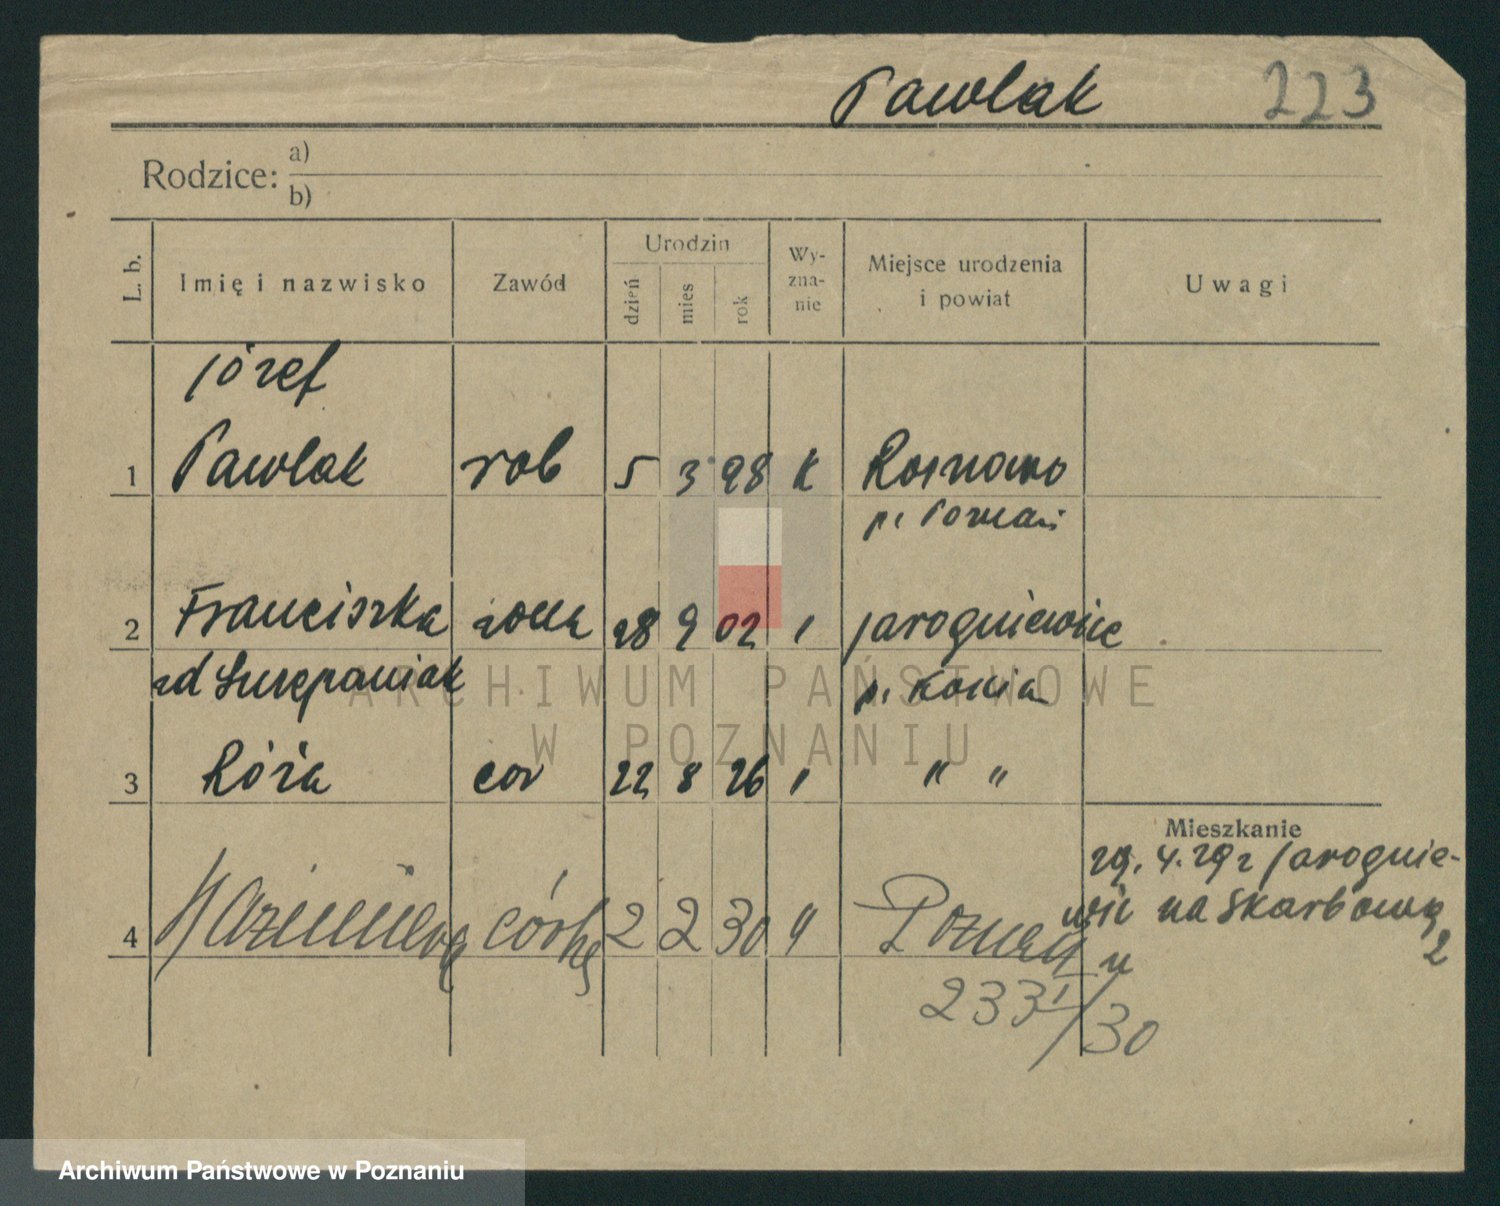 Pawlak 223
Rodzice: a)
b)
L. b. Imię i nazwisko Zawód Urodzin dzień mies rok Wy-zna-nie Miejsce urodzenia i powiat Uwagi
Józef
1 Pawlak rob 5 3 98 K Rosnowo
p. Poznań
2 Franciszka żona 28 9 02 " Jarogniewice
zd Szczepaniak p. Kościan
3 Róża cor 22 8 26 " " "
Mieszkanie
29. 4. 29 z Jarognie-
wic na Skarbową
2
4 Kazimiera córka 2 2 30 " Poznań
233 /30
ARCHIWUM PAŃSTWOWE
W POZNANIU
Archiwum Państwowe w Poznaniu